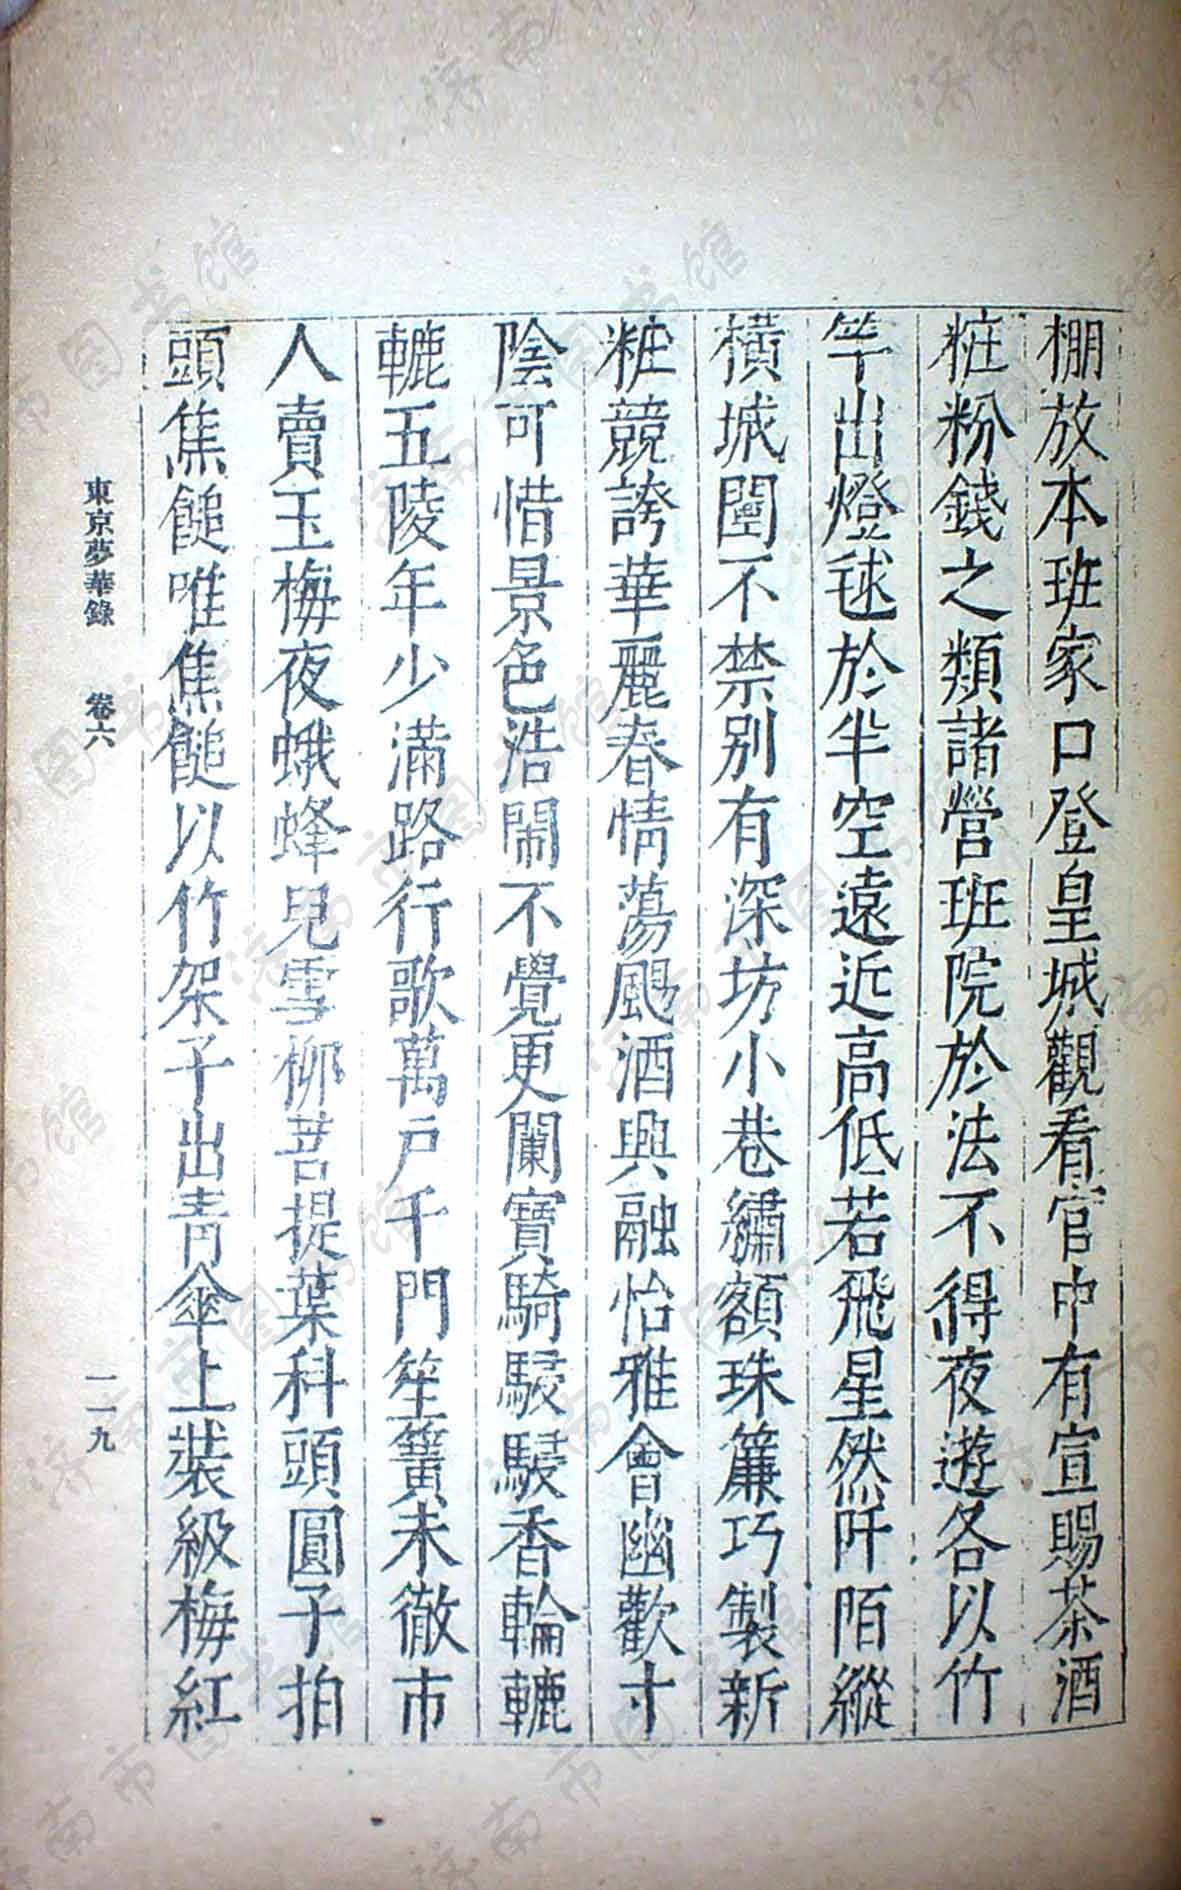 棚放本班家口登皇城觀看官中有宣賜茶酒
粧粉錢之類諸營班院於法不得夜遊各以竹
竿出燈毬於半空遠近高低若飛星然阡陌縱
橫城闉不禁别有深坊小巷繡額珠簾巧製新
粧競誇華麗春情蕩颺酒興融怡雅會幽歡寸
陰可惜景色浩閙不覺更闌寶騎駸駸香輪轆
轆五陵年少滿路行歌萬戶千門笙簧未徹市
人賣玉梅夜蛾蜂兒雪柳菩提葉科頭圓子拍
頭焦䭔唯焦䭔以竹架子出青傘上裝綴梅紅
東京夢華錄 卷六 一一九
济南市图书馆